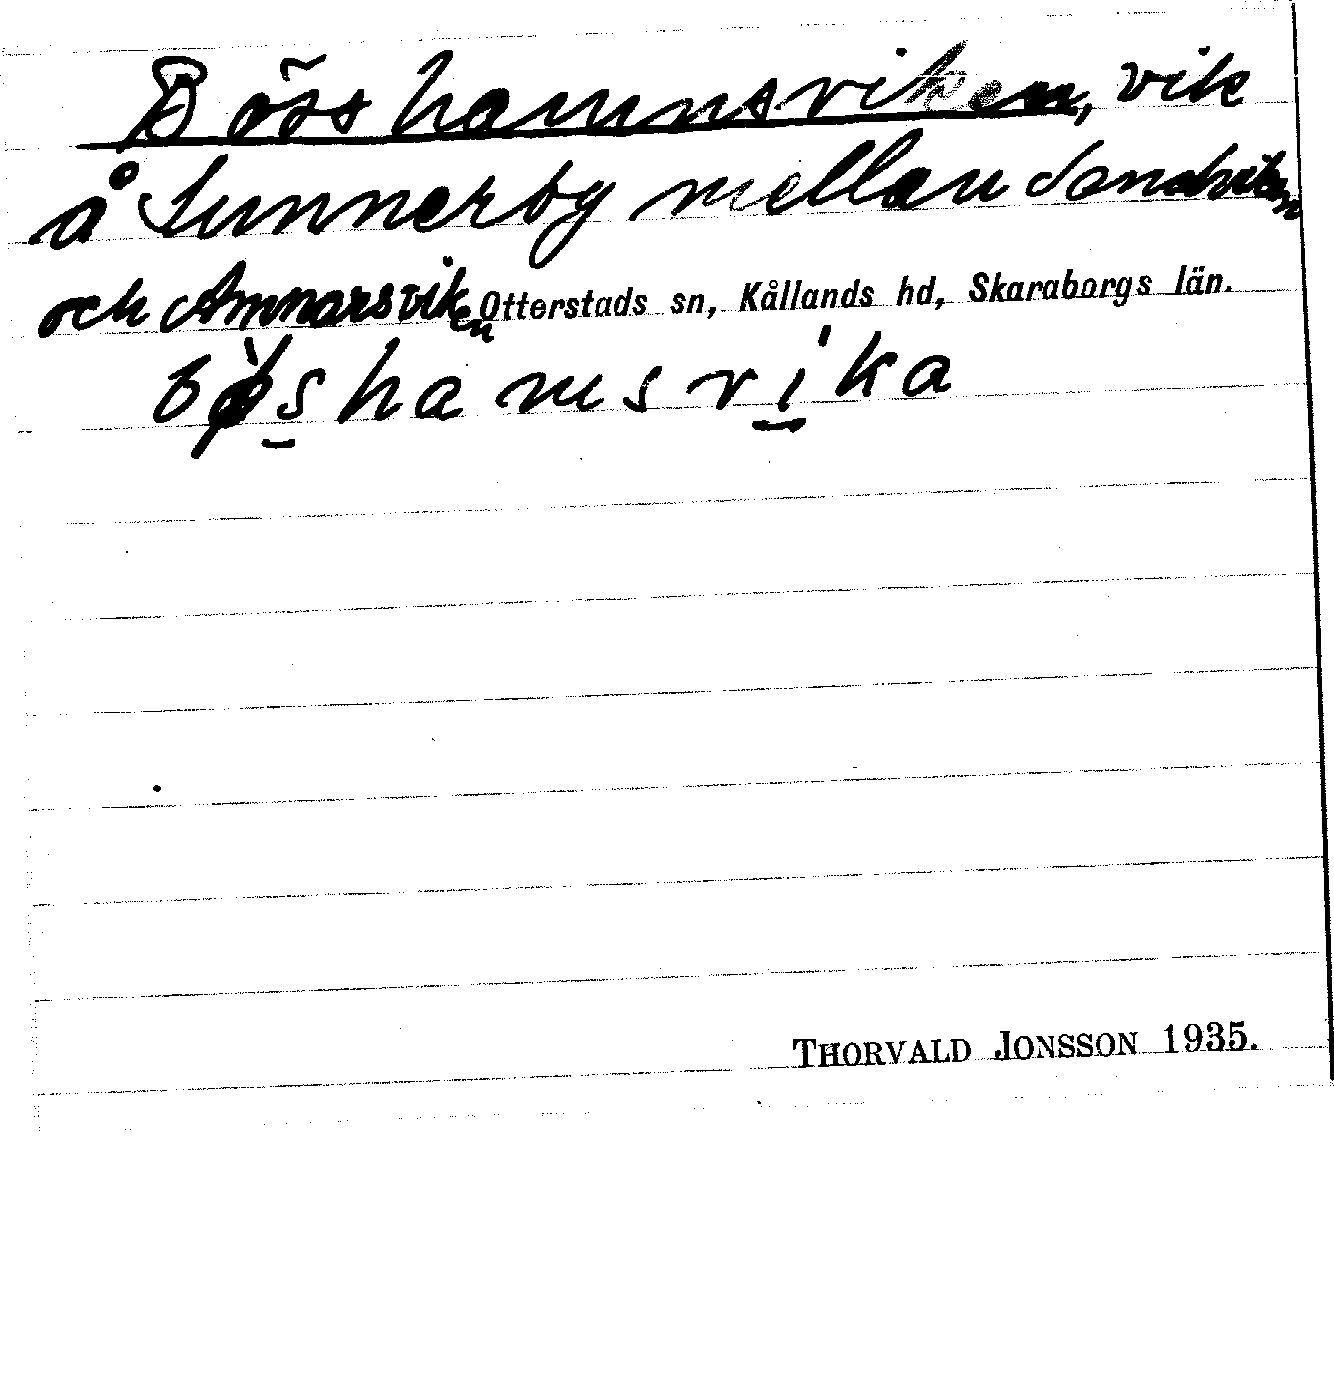 Bösshamnsviken, vik
å Sunnerby mellan Sandviken
och Annarsviken Otterstads sn, Kållands hd, Skaraborgs län.
bø̀s̲hamsví̲ka
THORVALD JONSSON 1935.